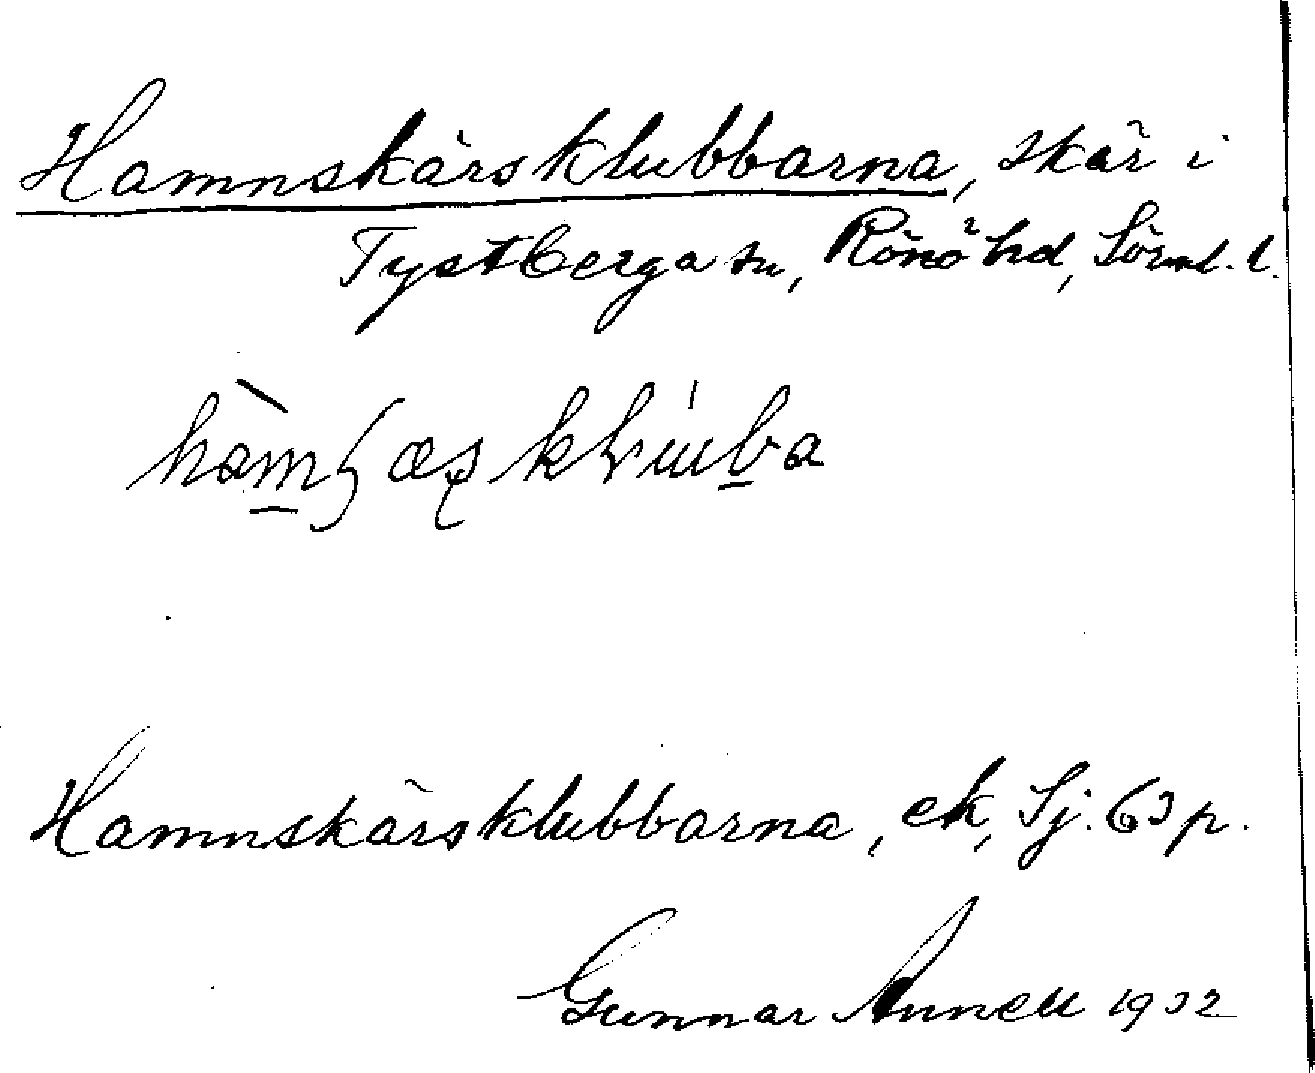 Hamnskärsklubbarna, skär i
Tystberga sn, Rönö hd, Sörml. l.
Hamnskärsklubbarna, ek, Sj. 63 p.
Gunnar Annell 1932